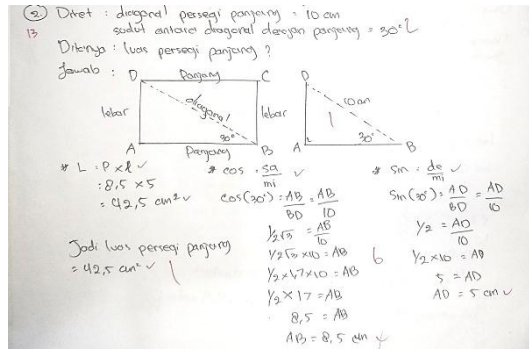 ② Diket : diagonal persegi panjang = 10 cm
13
sudut antara diagonal dengan panjang = 30° 2
Ditanya : luas persegi panjang ?
Jawab :
D Panjang C
diagonal
lebar
lebar
30°
A Panjang B
D
10 cm
1
30°
A B
* L = P x l ✓
= 8,5 x 5
= 42,5 cm² ✓
Jadi luas persegi panjang
= 42,5 cm² ✓ 1
* cos = sa/mi ✓
cos (30°) = AB/BD = AB/10
1/2√3 = AB/10
1/2√3 x 10 = AB
1/2 x 1,7 x 10 = AB
1/2 x 17 = AB
8,5 = AB
AB = 8,5 cm ✓
6
* sin = de/mi ✓
Sin (30°) = AD/BD = AD/10
1/2 = AD/10
1/2 x 10 = AD
5 = AD
AD = 5 cm ✓